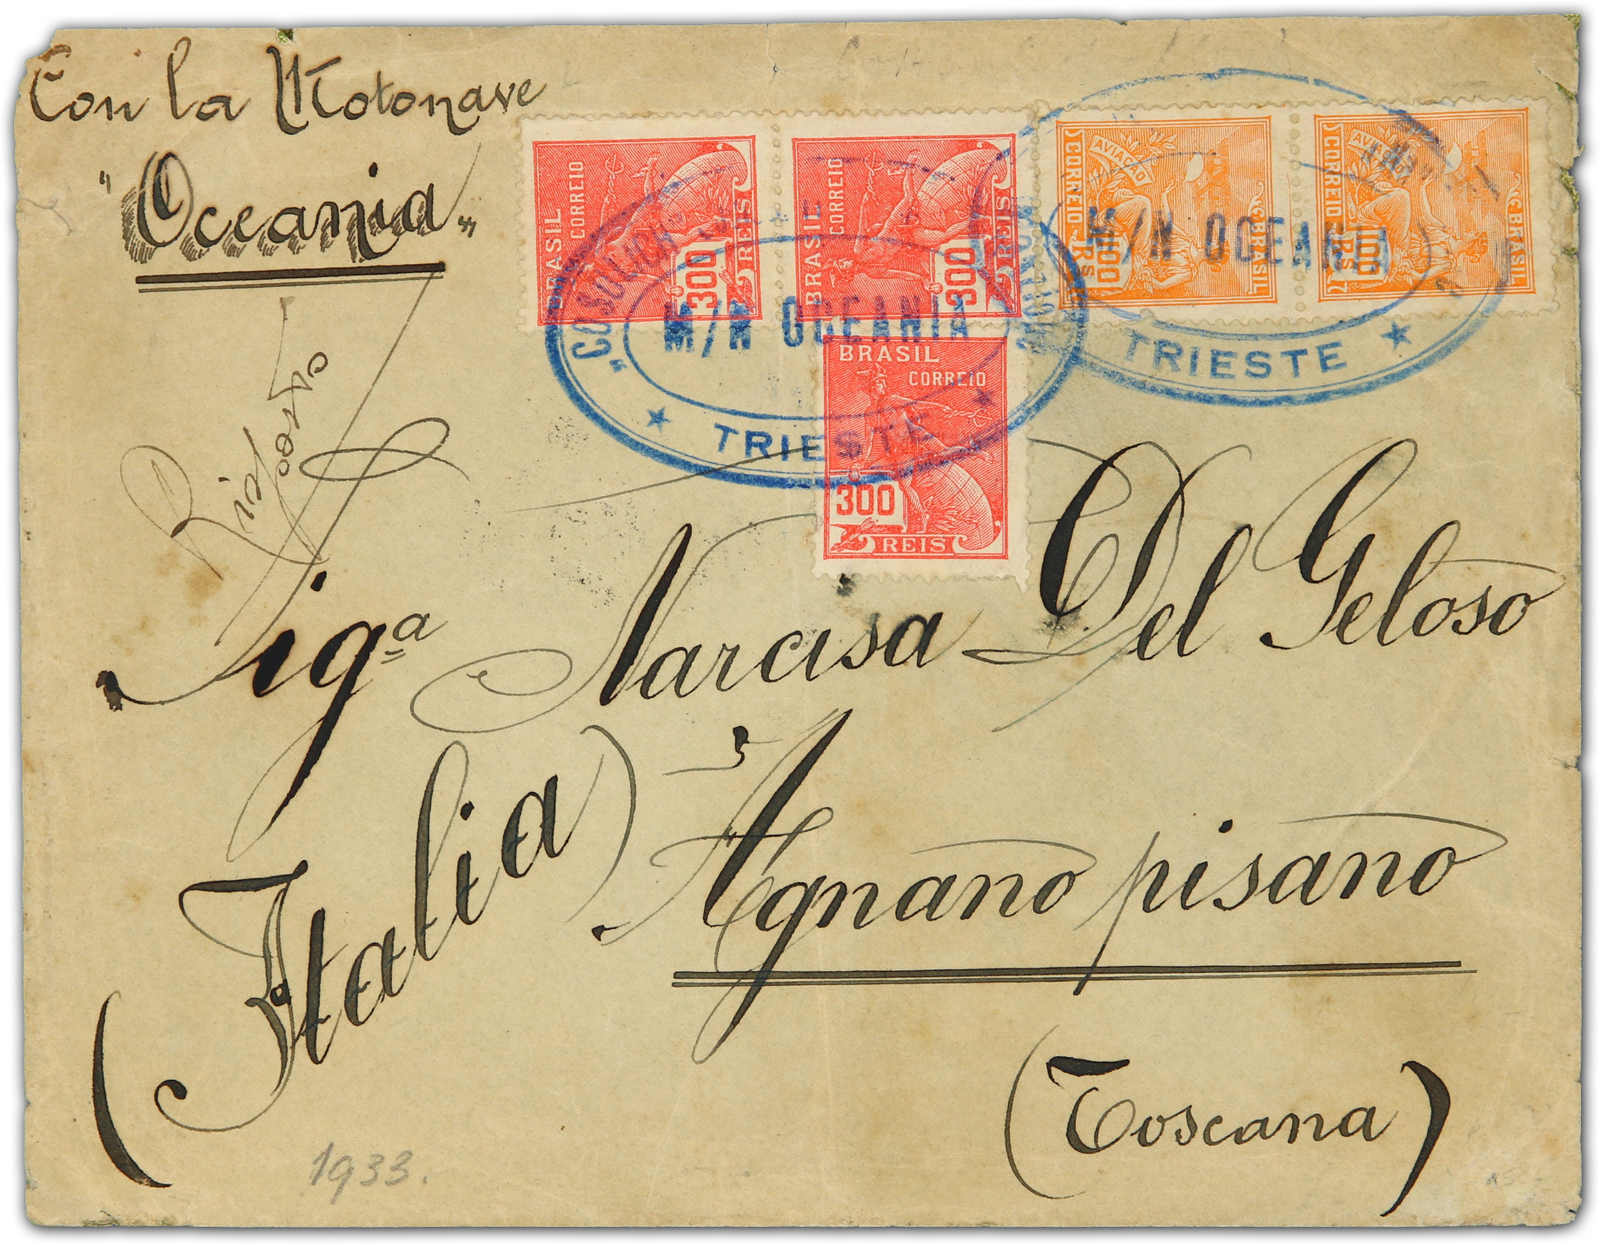 Con la Motonave
"Oceania"
Risposta
BRASIL CORREIO
300 REIS
BRASIL CORREIO
300 REIS
AVIAÇÃO
CORREIO
BRASIL
CORREIO
100 RS
BRASIL
"COSULICH
M/N OCEANIA
★ TRIESTE ★
M/N OCEANIA
TRIESTE ★
BRASIL
CORREIO
300
REIS
Sigª Narcisa Del Geloso
Agnano pisano
(Italia)
(Toscana)
1933.